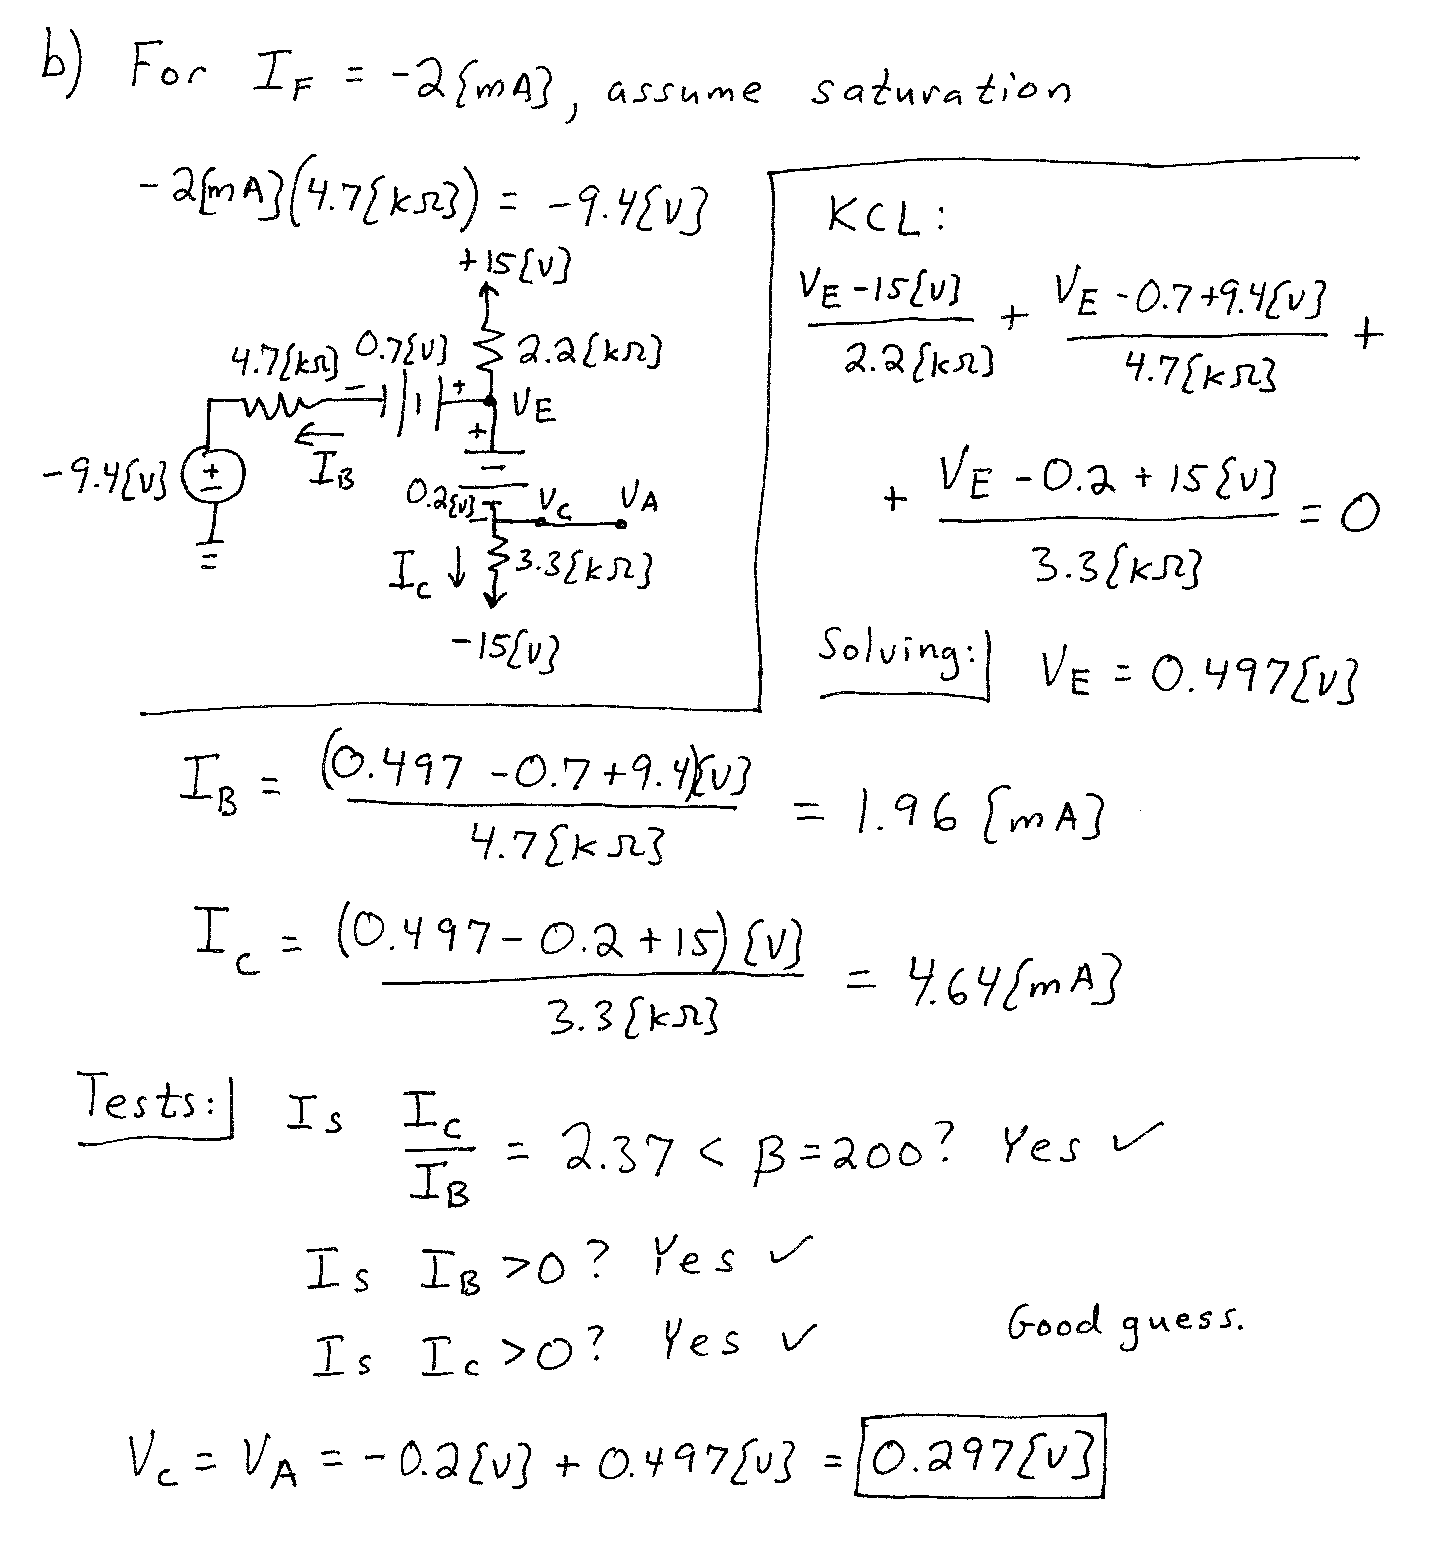 b) For I_F = -2{mA}, assume saturation
-2{mA}(4.7{kΩ}) = -9.4{V}
+15{V}
4.7{kΩ} 0.7{V} 2.2{kΩ}
- + V_E
+
-9.4{V} + - I_B 0.2{V} - V_C V_A
I_C ↓ 3.3{kΩ}
-15{V}
KCL:
V_E -15{V} / 2.2{kΩ} + V_E -0.7+9.4{V} / 4.7{kΩ} +
+ V_E -0.2 + 15{V} / 3.3{kΩ} = 0
Solving: V_E = 0.497{V}
I_B = (0.497 -0.7+9.4){V} / 4.7{kΩ} = 1.96 {mA}
I_C = (0.497-0.2+15){V} / 3.3{kΩ} = 4.64{mA}
Tests: Is I_C / I_B = 2.37 < β=200? Yes ✓
Is I_B >0? Yes ✓
Is I_C >0? Yes ✓
Good guess.
V_C = V_A = -0.2{V} + 0.497{V} = 0.297{V}